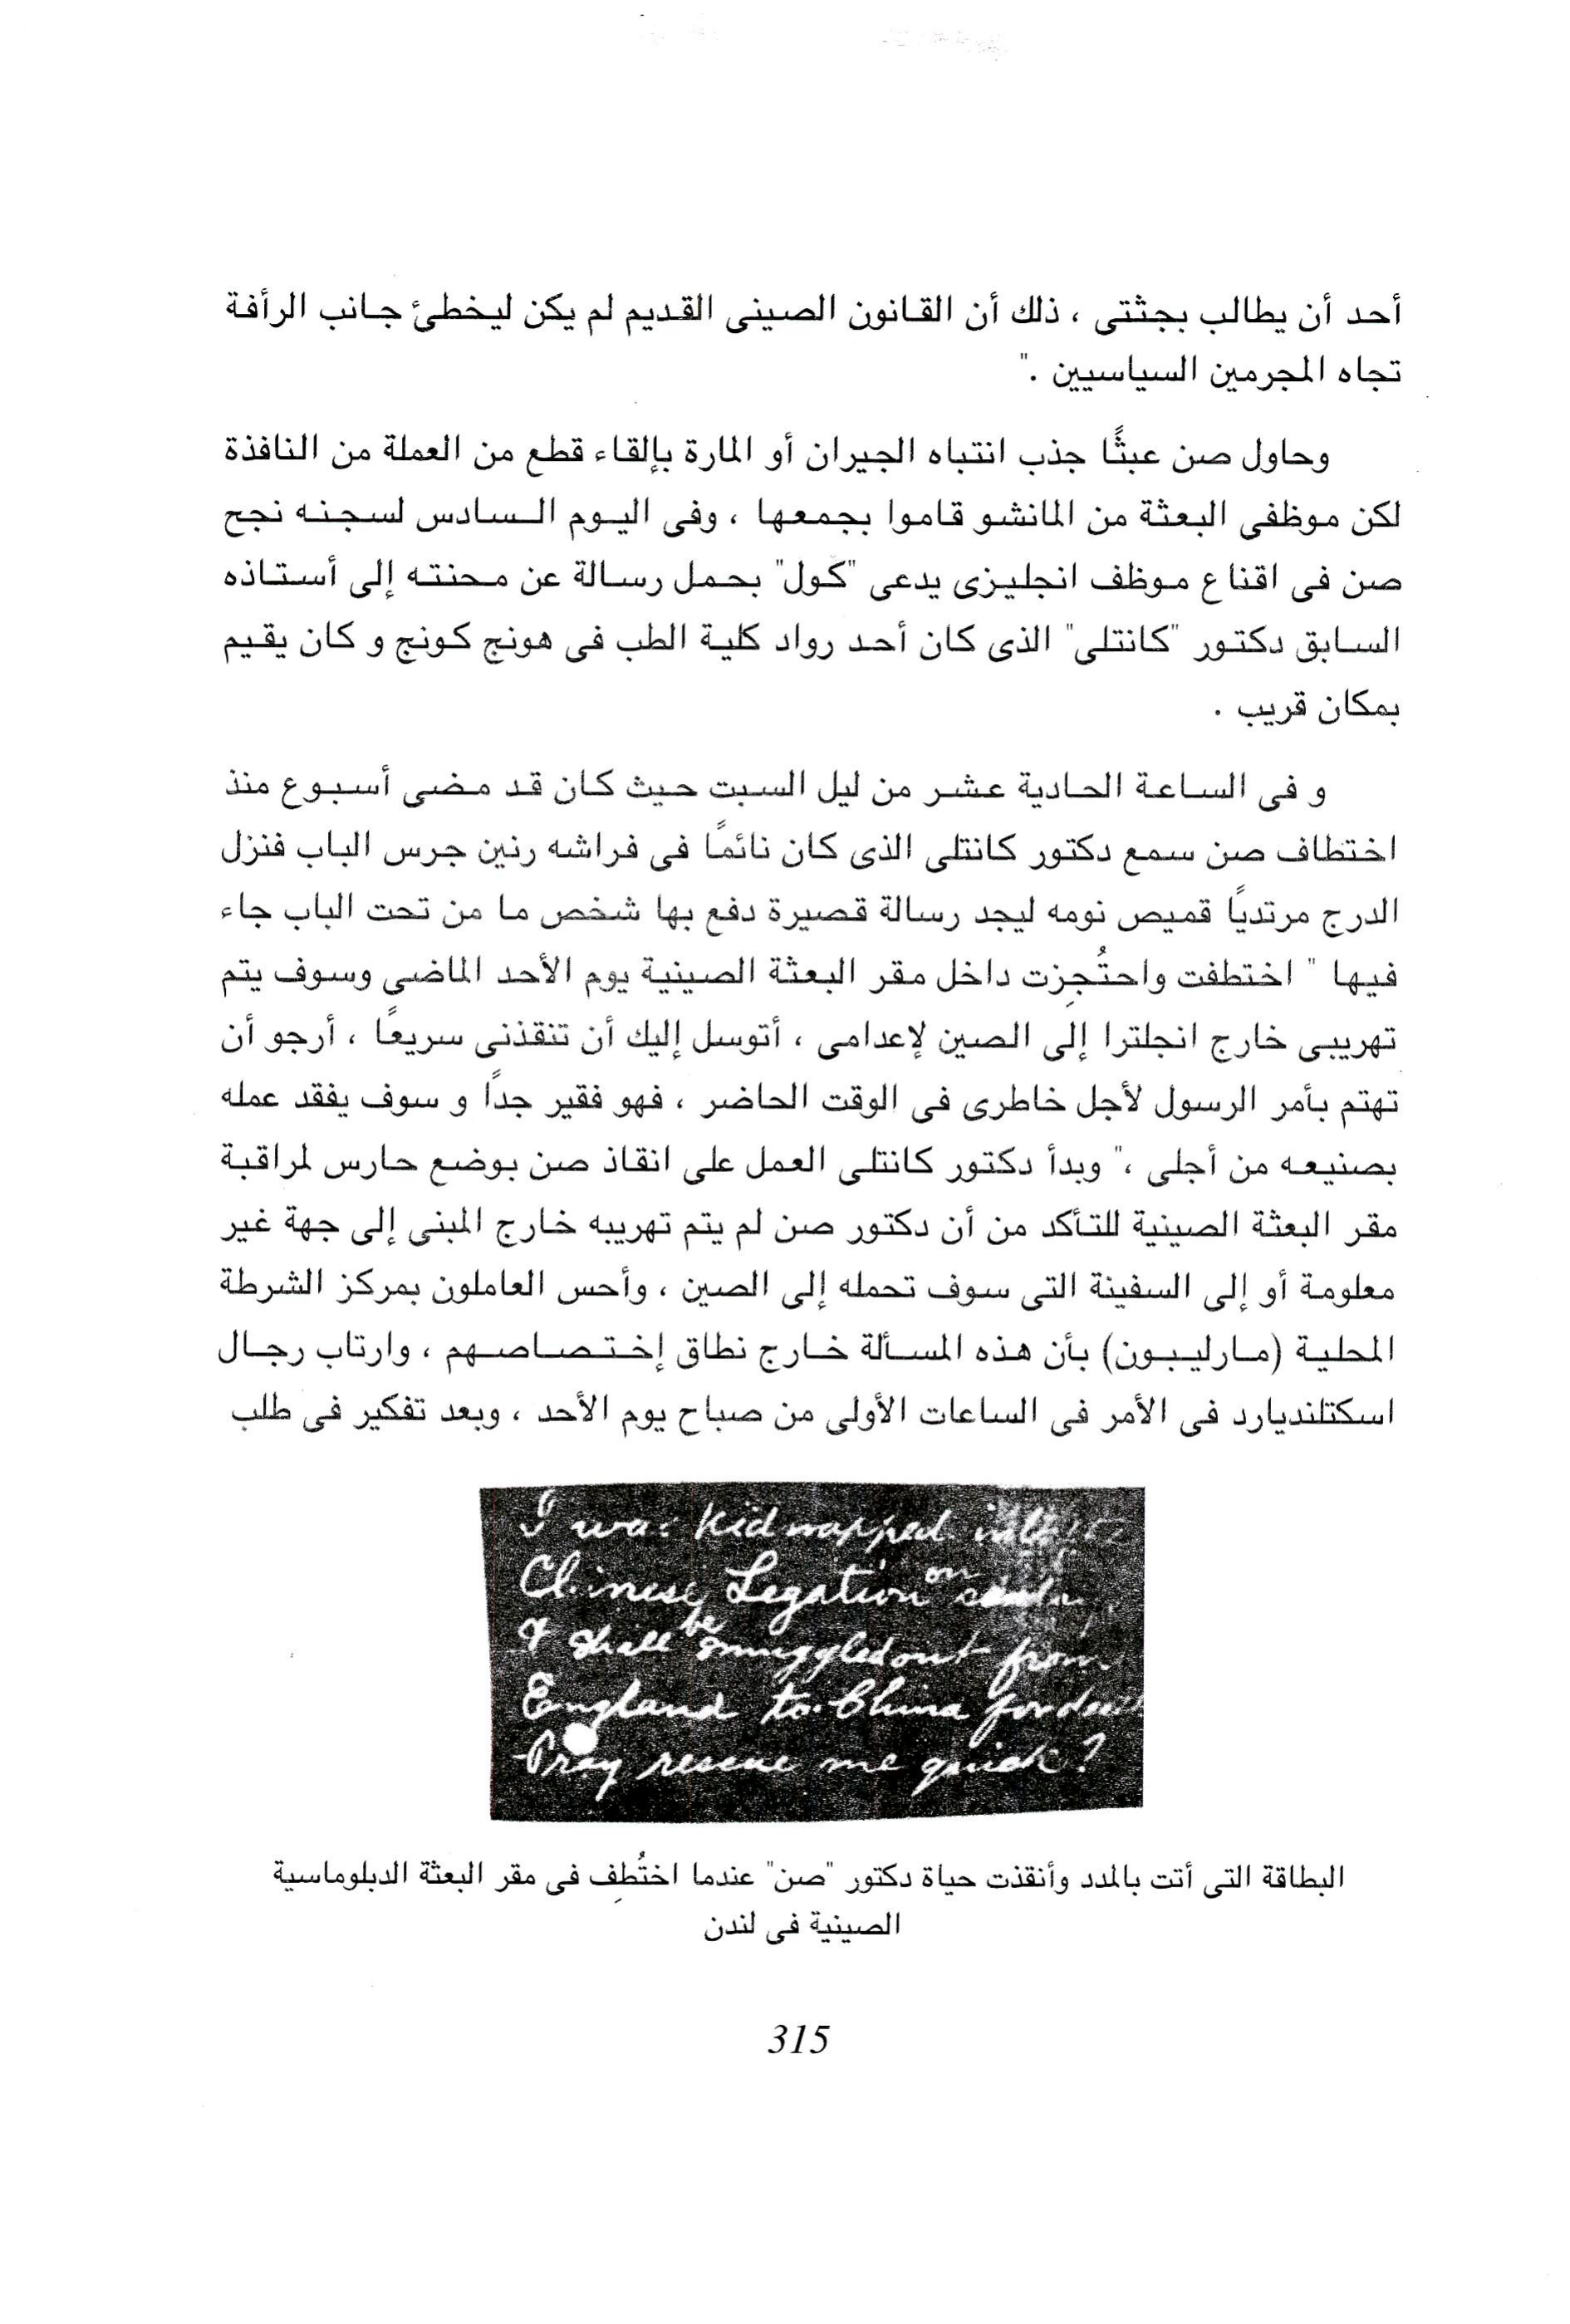 أحد أن يطالب بجثتى ، ذلك أن القانون الصينى القديم لم يكن ليخطئ جانب الرأفة
تجاه المجرمين السياسيين ."
وحاول صن عبثًا جذب انتباه الجيران أو المارة بإلقاء قطع من العملة من النافذة
لكن موظفى البعثة من المانشو قاموا بجمعها ، وفى اليوم السادس لسجنه نجح
صن فى اقناع موظف انجليزى يدعى "كول" بحمل رسالة عن محنته إلى أستاذه
السابق دكتور "كانتلى" الذى كان أحد رواد كلية الطب فى هونج كونج و كان يقيم
بمكان قريب .
و فى الساعة الحادية عشر من ليل السبت حيث كان قد مضى أسبوع منذ
اختطاف صن سمع دكتور كانتلى الذى كان نائمًا فى فراشه رنين جرس الباب فنزل
الدرج مرتديًا قميص نومه ليجد رسالة قصيرة دفع بها شخص ما من تحت الباب جاء
فيها " اختطفت واحتُجِزت داخل مقر البعثة الصينية يوم الأحد الماضى وسوف يتم
تهريبى خارج انجلترا إلى الصين لإعدامى ، أتوسل إليك أن تنقذنى سريعًا ، أرجو أن
تهتم بأمر الرسول لأجل خاطرى فى الوقت الحاضر ، فهو فقير جدًا و سوف يفقد عمله
بصنيعه من أجلى ،" وبدأ دكتور كانتلى العمل على انقاذ صن بوضع حارس لمراقبة
مقر البعثة الصينية للتأكد من أن دكتور صن لم يتم تهريبه خارج المبنى إلى جهة غير
معلومة أو إلى السفينة التى سوف تحمله إلى الصين ، وأحس العاملون بمركز الشرطة
المحلية (مارليبون) بأن هذه المسألة خارج نطاق إختصاصهم ، وارتاب رجال
اسكتلنديارد فى الأمر فى الساعات الأولى من صباح يوم الأحد ، وبعد تفكير فى طلب
I was kidnapped
Chinese Legation on
I shall be smuggled out from
England to China for
Pray rescue me quick?
البطاقة التى أتت بالمدد وأنقذت حياة دكتور "صن" عندما اختُطِف فى مقر البعثة الدبلوماسية
الصينية فى لندن
315